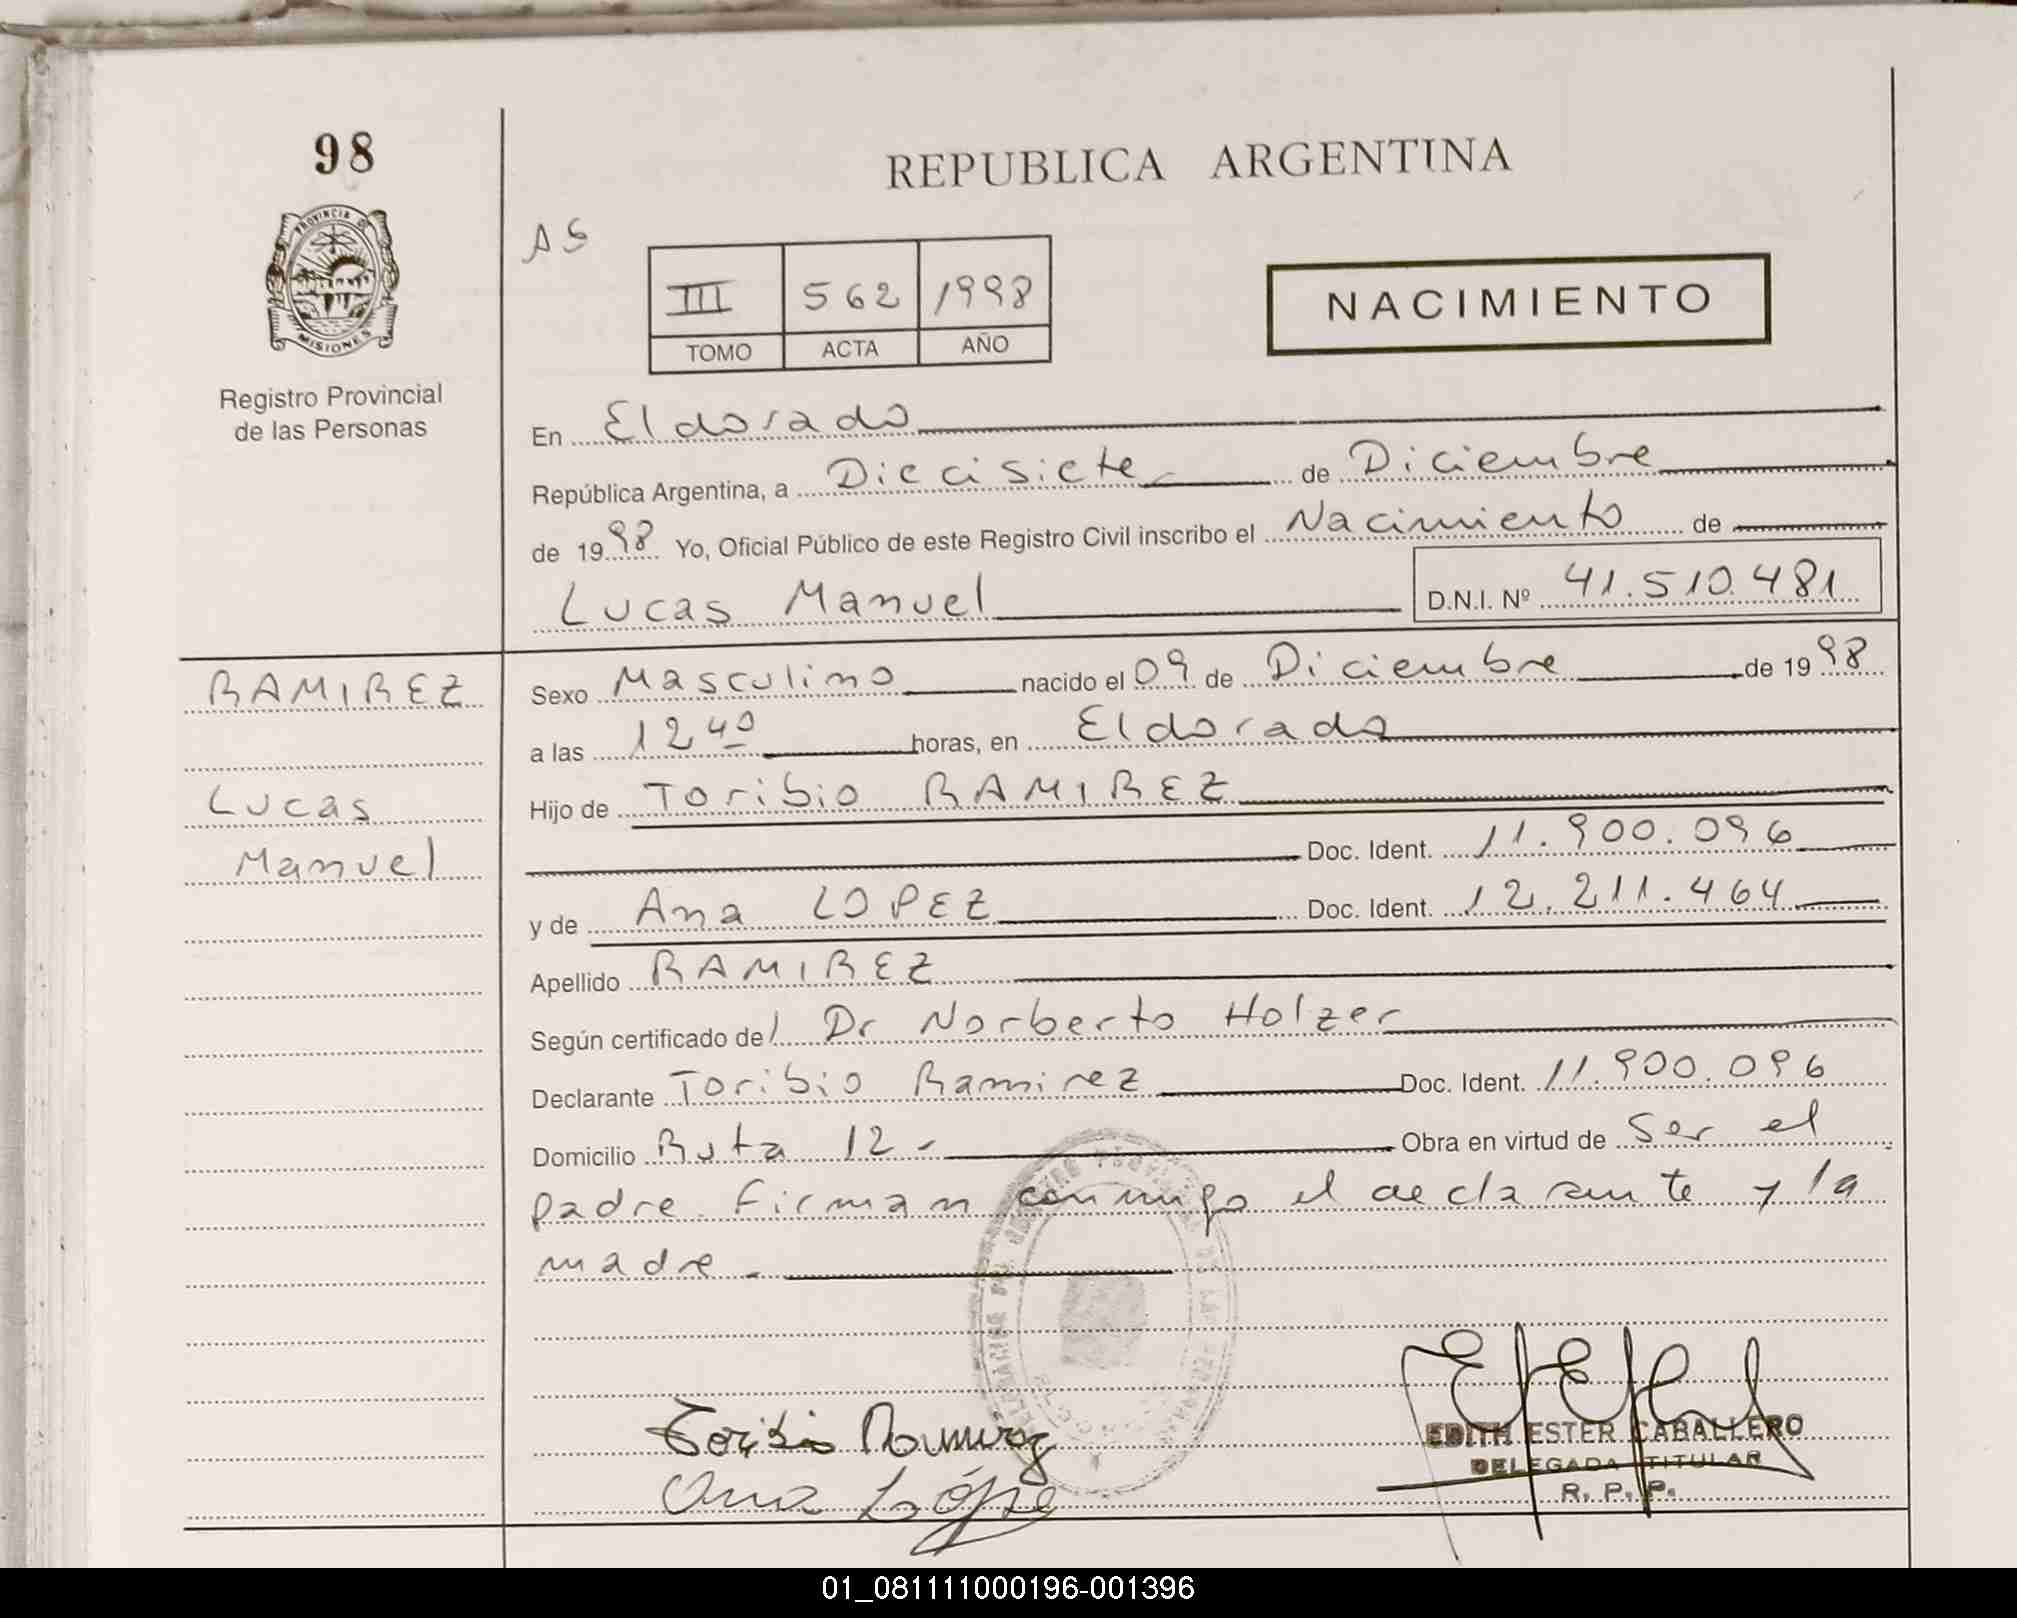 98
REPUBLICA ARGENTINA
PROVINCIA DE
MISIONES
Registro Provincial
de las Personas
AS
III 562 1998
TOMO ACTA AÑO
NACIMIENTO
En Eldorado
República Argentina, a Diecisiete de Diciembre
de 1998 Yo, Oficial Público de este Registro Civil inscribo el Nacimiento de
Lucas Manuel D.N.I. Nº 41.510.481
RAMIREZ
Lucas
Manuel
Sexo Masculino nacido el 09 de Diciembre de 1998
a las 12 40 horas, en Eldorado
Hijo de Toribio RAMIREZ
Doc. Ident. 11.900.096
y de Ana LOPEZ Doc. Ident. 12.211.464
Apellido RAMIREZ
Según certificado del Dr Norberto Holzer
Declarante Toribio Ramirez Doc. Ident. 11.900.096
Domicilio Ruta 12 - Obra en virtud de Ser el
padre. Firman conmigo el declarante y la
madre.-
Toribio Ramirez
Ana López
EDITH ESTER CABALLERO
DELEGADA TITULAR
R. P. P.
01_081111000196-001396